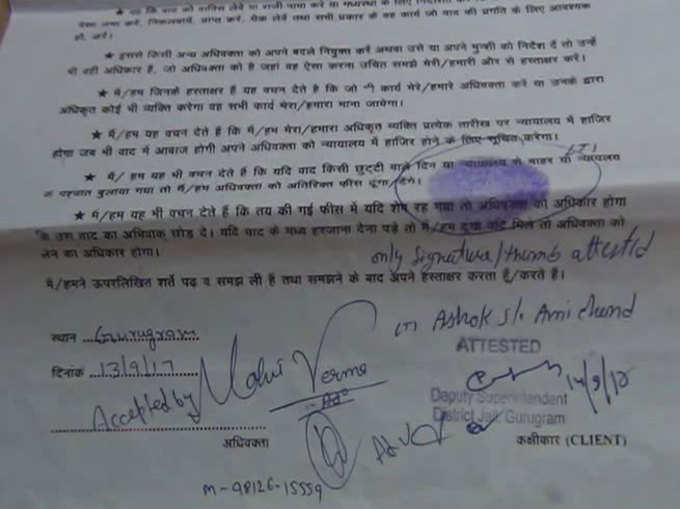 ★ यह कि वाद को वापिस लेवें या राजी नामा करें या मध्यस्थता के लिए
पैसा जमा करें, निकलवायें, प्राप्त करें, चैक लेवें तथा सभी प्रकार के वह कार्य जो वाद की प्रगति के लिए आवश्यक
हो, करें।
★ इससे किसी अन्य अधिवक्ता को अपने बदले नियुक्त करें अथवा उसे या अपने मुन्शी को निर्देश दें तो उन्हें
भी वही अधिकार है, जो अधिवक्ता को है जहां वह ऐसा करना उचित समझे मेरी/हमारी और से हस्ताक्षर करें।
★ मैं/हम जिनके हस्ताक्षर हैं यह वचन देते है कि जो भी कार्य मेरे/हमारे अधिवक्ता करें या उनके द्वारा
अधिकृत कोई भी व्यक्ति करेगा वह सभी कार्य मेरा/हमारा माना जायेगा।
★ मैं/हम यह वचन देते हैं कि मैं/हम मेरा/हमारा अधिकृत व्यक्ति प्रत्येक तारीख पर न्यायालय में हाजिर
होगा जब भी वाद में आवाज होगी अपने अधिवक्ता को न्यायालय में हाजिर होने के लिए सूचित करेगा।
★ मैं/ हम यह भी वचन देते है कि यदि वाद किसी छुट्टी वाले दिन या न्यायालय से बाहर या न्यायालय
के पश्चात बुलाया गया तो मैं/हम अधिवक्ता को अतिरिक्त फीस दूंगा/देंगे।
LTI
★ मैं/हम यह भी वचन देते है कि तय की गई फीस में यदि शेष रह गया तो अधिवक्ता को अधिकार होगा
कि उस वाद का अभिवाक छोड दें। यदि वाद के मध्य हरजाना देना पड़े तो मैं/हम दूंगा यदि मिले तो अधिवक्ता को
लेने का अधिकार होगा।
only signature/thumb attested
मैं/हमने ऊपरलिखित शर्ते पढ़ व समझ ली हैं तथा समझने के बाद अपने हस्ताक्षर करता हूँ/करते है।
LTI Ashok S/o Ami chand
स्थान Gurugram
ATTESTED
दिनांक 13/9/17
14/9/17
Accepted by Mohit Verma
Adv
Deputy Superintendent
District Jail, Gurugram
अधिवक्ता
कक्षीकार (CLIENT)
M-98126-15559